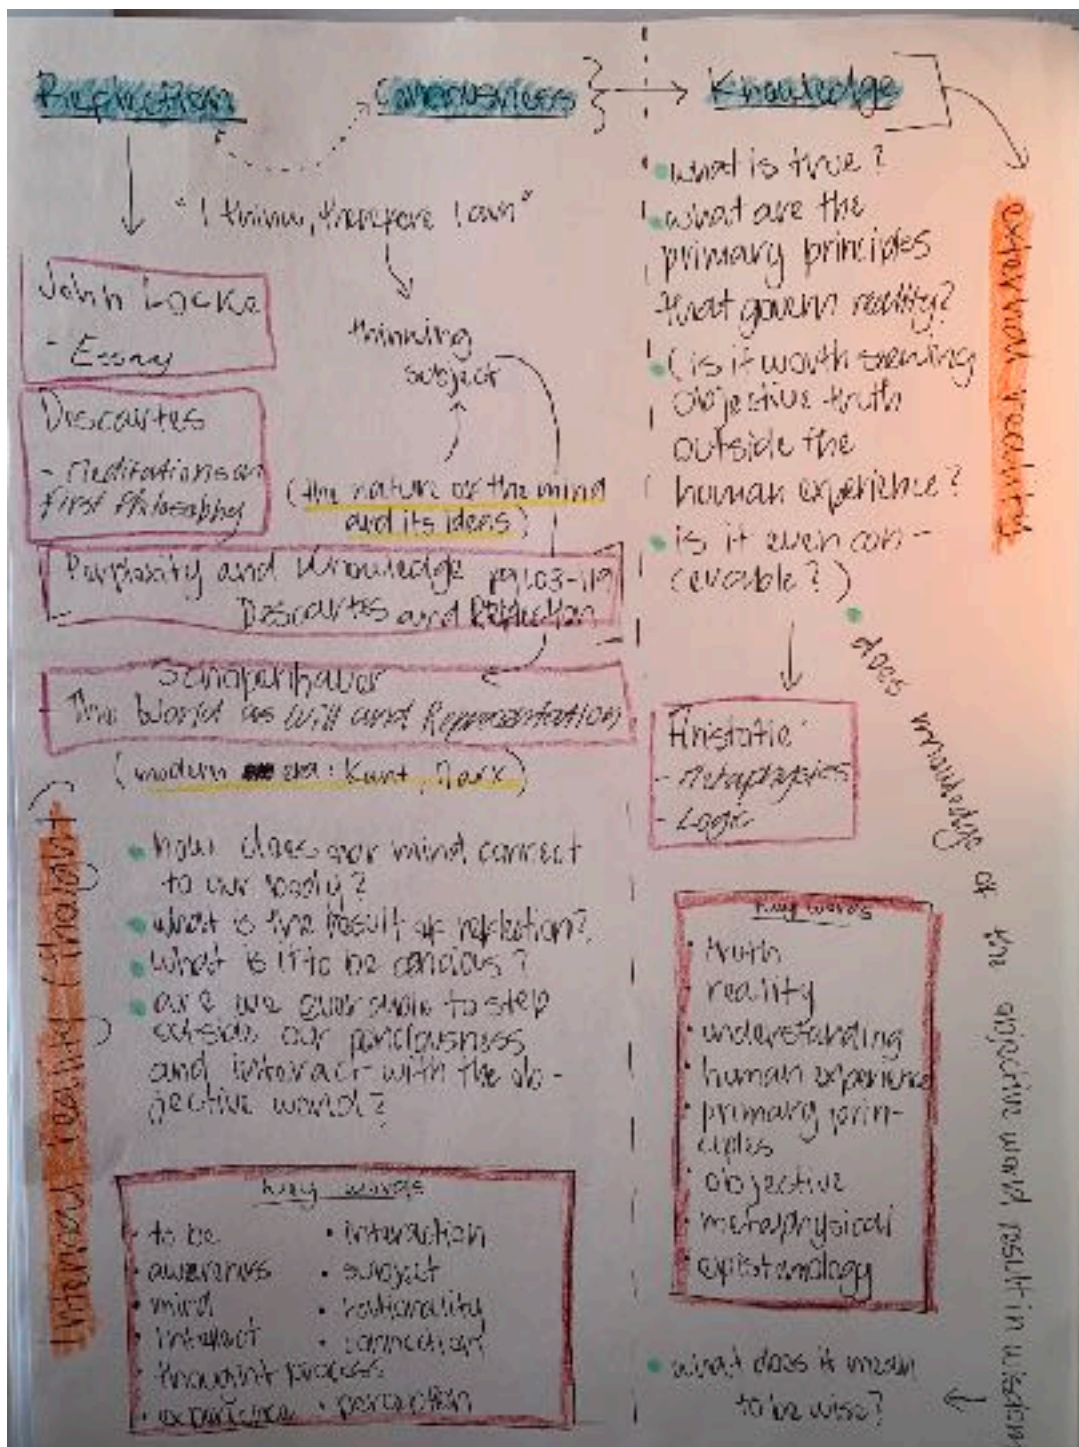 Reflection
Consciousness
Knowledge
"I think, therefore I am"
John Locke
- Essay
thinking
subject
Descartes
- Meditations on
First Philosophy
(the nature of the mind
and its ideas)
Perplexity and Knowledge pg 103-119
Descartes and Reflection
Schopenhauer
- The World as Will and Representation
(modern era: Kant, Marx)
internal reality (thought)
• how does our mind connect
to our body?
• what is the result of reflection?
• what is it to be concious?
• are we ever able to step
outside our conciousness
and interact with the ob-
jective world?
key words
• to be
• awareness
• mind
• intellect
• thought process
• experience
• interaction
• subject
• rationality
• connection
• perception
• what is true?
• what are the
primary principles
that govern reality?
• (is it worth seeking
objective truth
outside the
human experience?
• is it even con-
cevable?)
external reality
Aristotle
- Metaphysics
- Logic
• does knowledge to the objective world result in wisdom
key words
• truth
• reality
• understanding
• human experience
• primary prin-
ciples
• objective
• metaphysical
• epistemology
• what does it mean
to be wise?